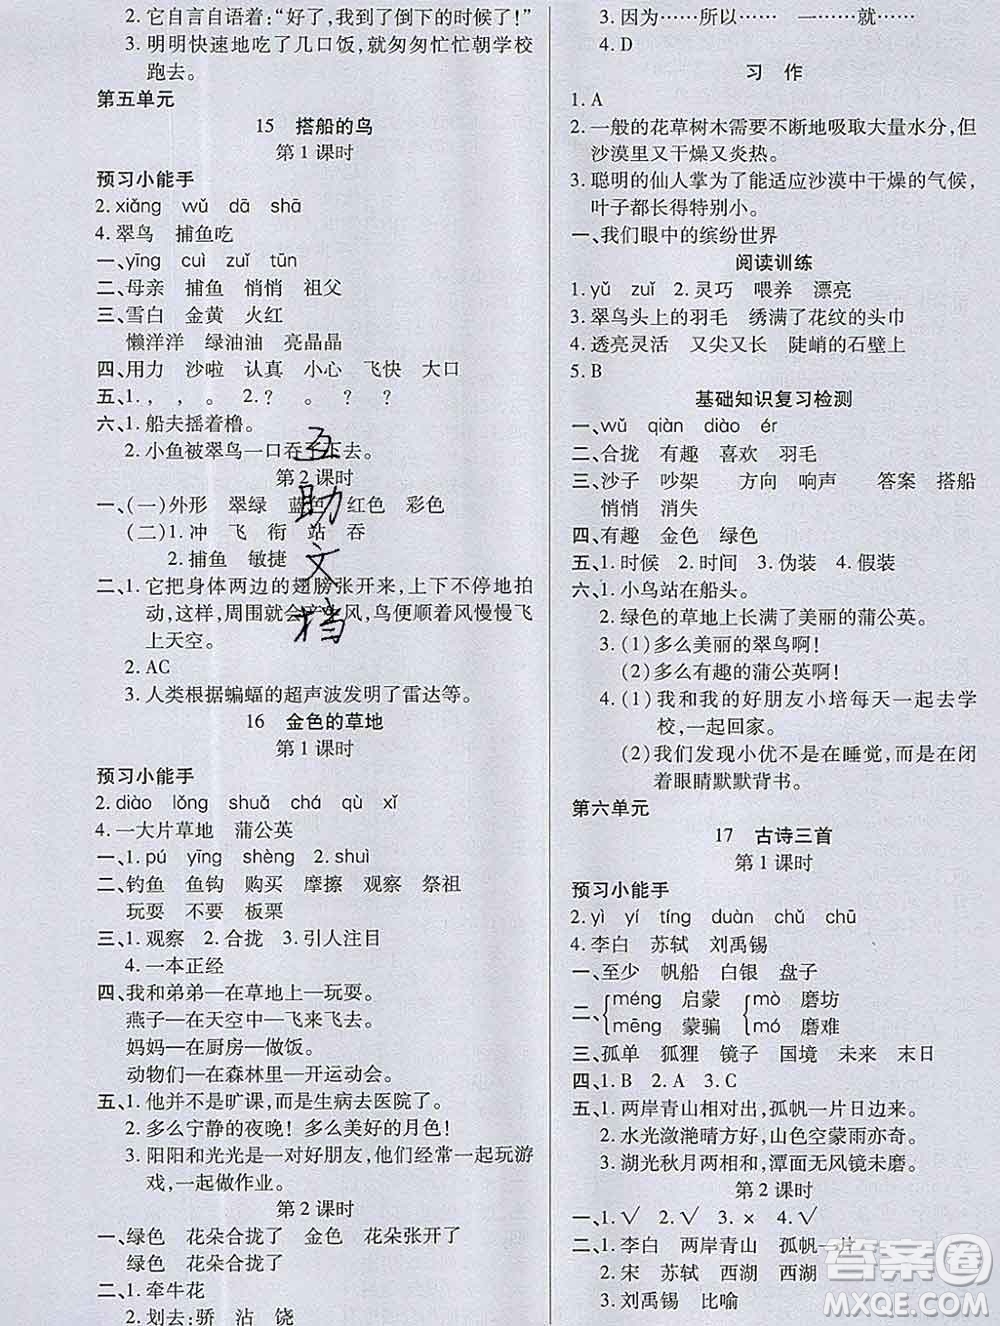 2. 它自言自语着:“好了,我到了倒下的时候了!”
3. 明明快速地吃了几口饭,就匆匆忙忙朝学校
跑去。
第五单元
15 搭船的鸟
第1课时
预习小能手
2. xiǎng wǔ dā shā
4. 翠鸟 捕鱼吃
一、yīng cuì zuǐ tūn
二、母亲 捕鱼 悄悄 祖父
三、雪白 金黄 火红
懒洋洋 绿油油 亮晶晶
四、用力 沙啦 认真 小心 飞快 大口
五、1. , , 。 2. ? 。 ? ? ?
六、1. 船夫摇着橹。
2. 小鱼被翠鸟一口吞了下去。
第2课时
一、(一)外形 翠绿 蓝色 红色 彩色
(二)1. 冲 飞 衔 站 吞
2. 捕鱼 敏捷
二、1. 它把身体两边的翅膀张开来,上下不停地拍
动,这样,周围就会产生风,鸟便顺着风慢慢飞
上天空。
2. AC
3. 人类根据蝙蝠的超声波发明了雷达等。
16 金色的草地
第1课时
预习小能手
2. diào lǒng shuǎ chá qù xǐ
4. 一大片草地 蒲公英
一、1. pú yīng shèng 2. shuì
二、钓鱼 鱼钩 购买 摩擦 观察 祭祖
玩耍 不要 板栗
三、1. 观察 2. 合拢 3. 引人注目
4. 一本正经
四、我和弟弟—在草地上—玩耍。
燕子—在天空中—飞来飞去。
妈妈—在厨房—做饭。
动物们—在森林里—开运动会。
五、1. 他并不是旷课,而是生病去医院了。
2. 多么宁静的夜晚! 多么美好的月色!
3. 阳阳和光光是一对好朋友,他们经常一起玩游
戏,一起做作业。
第2课时
一、绿色 花朵合拢了 金色 花朵张开了
绿色 花朵合拢了
二、1. 牵牛花
2. 划去:骄 沾 饶
3. 因为……所以…… 一……就……
4. D
习 作
1. A
2. 一般的花草树木需要不断地吸取大量水分,但
沙漠里又干燥又炎热。
3. 聪明的仙人掌为了能适应沙漠中干燥的气候,
叶子都长得特别小。
一、我们眼中的缤纷世界
阅读训练
1. yǔ zuǐ 2. 灵巧 喂养 漂亮
3. 翠鸟头上的羽毛 绣满了花纹的头巾
4. 透亮灵活 又尖又长 陡峭的石壁上
5. B
基础知识复习检测
一、wǔ qiàn diào ér
二、合拢 有趣 喜欢 羽毛
三、沙子 吵架 方向 响声 答案 搭船
悄悄 消失
四、有趣 金色 绿色
五、1. 时候 2. 时间 3. 伪装 4. 假装
六、1. 小鸟站在船头。
2. 绿色的草地上长满了的蒲公英。
3. (1)多么美丽的翠鸟啊!
(2)多么有趣的蒲公英啊!
4. (1)我和我的好朋友小培每天一起去学
校,一起回家。
(2)我们发现小优不是在睡觉,而是在闭
着眼睛默默背书。
第六单元
17 古诗三首
第1课时
预习小能手
2. yì yí tíng duàn chǔ chū
4. 李白 苏轼 刘禹锡
一、至少 帆船 白银 盘子
二、méng 启蒙 mò 磨坊
mēng 蒙骗 mó 磨难
三、孤单 狐狸 镜子 国境 未来 末日
四、1. B 2. A 3. C
五、1. 两岸青山相对出,孤帆一片日边来。
2. 水光潋滟晴方好,山色空蒙雨亦奇。
3. 湖光秋月两相和,潭面无风镜未磨。
第2课时
一、1. √ 2. √ 3. × 4. √
二、1. 李白 两岸青山 孤帆一片
2. 宋 苏轼 西湖 西湖
3. 刘禹锡 比喻
互助文档
答案圈
MXQE.COM